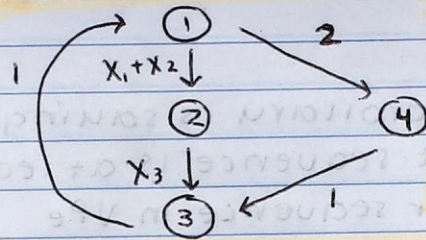 1
2
1
X₁+X₂
2
4
X₃
1
3